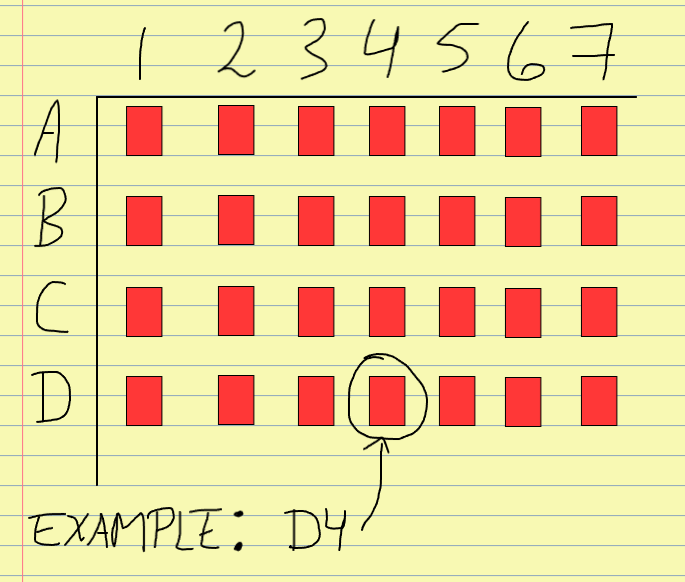 1 2 3 4 5 6 7
A
B
C
D
EXAMPLE: D4